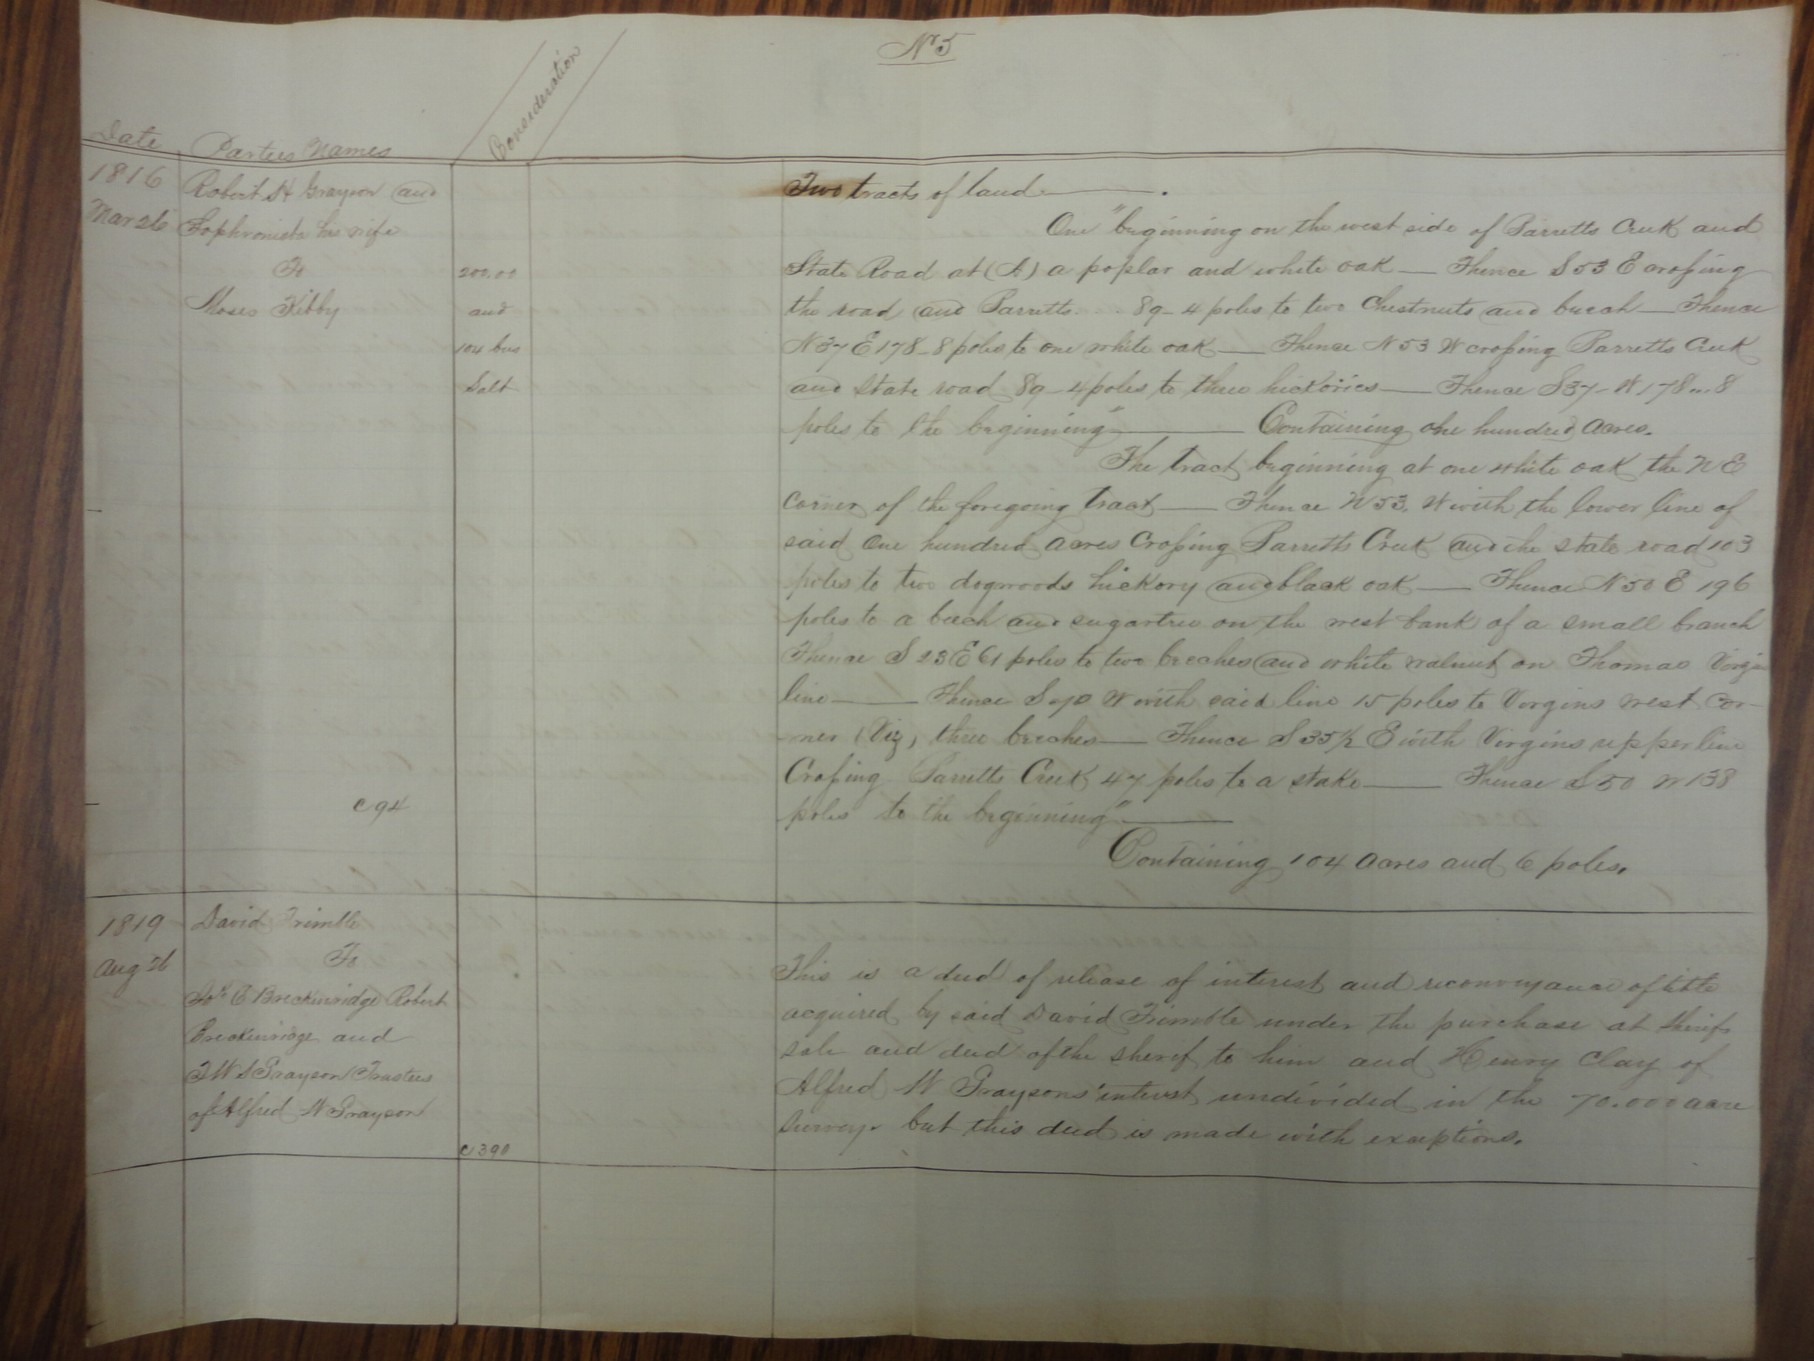 No 5
Date Parties Names Consideration
1816
Mar 26
Robert H Grayson and
Sophronisba his wife
To
Moses Kibby
200.00
and
104 bus
Salt
C 94
Two tracts of land.
One "beginning on the west side of Parretts Creek and
State Road at (A) a poplar and white oak — Thence S 53 E crossing
the road and Parretts 89-4 poles to two Chestnuts and beech — Thence
N 37 E 178-8 poles to one white oak — Thence N 53 W crossing Parretts Creek
and State road 89-4 poles to three hickories — Thence S 37-W 178...8
poles to the beginning" — Containing one hundred acres.
The tract beginning at one white oak the N E
corner of the foregoing tract — Thence N 53. W with the lower line of
said One hundred acres Crossing Parretts Creek and the state road 103
poles to two dogwoods hickory and black oak — Thence N 50 E 196
poles to a beech and sugartree on the west bank of a small branch
Thence S 23 E 61 poles to two beeches and white walnut on Thomas Virgin
line — Thence S W with said line 15 poles to Virgins west cor-
ner (Viz) three beeches — Thence S 35½ E with Virgins upper line
Crossing Parretts Creek 47 poles to a stake — Thence S 50 W 138
poles to the beginning" —
Containing 104 acres and 6 poles.
1819
Aug 26
David Trimble
To
Jos C Breckinridge Robert
Breckinridge and
F W S Grayson Trustees
of Alfred W Grayson
C 390
This is a deed of release of interest and reconveyance of title
acquired by said David Trimble under the purchase at Sherifs
sale and deed of the sherif to him and Henry Clay of
Alfred W Graysons' interest undivided in the 70.000 acre
survey. but this deed is made with exceptions.